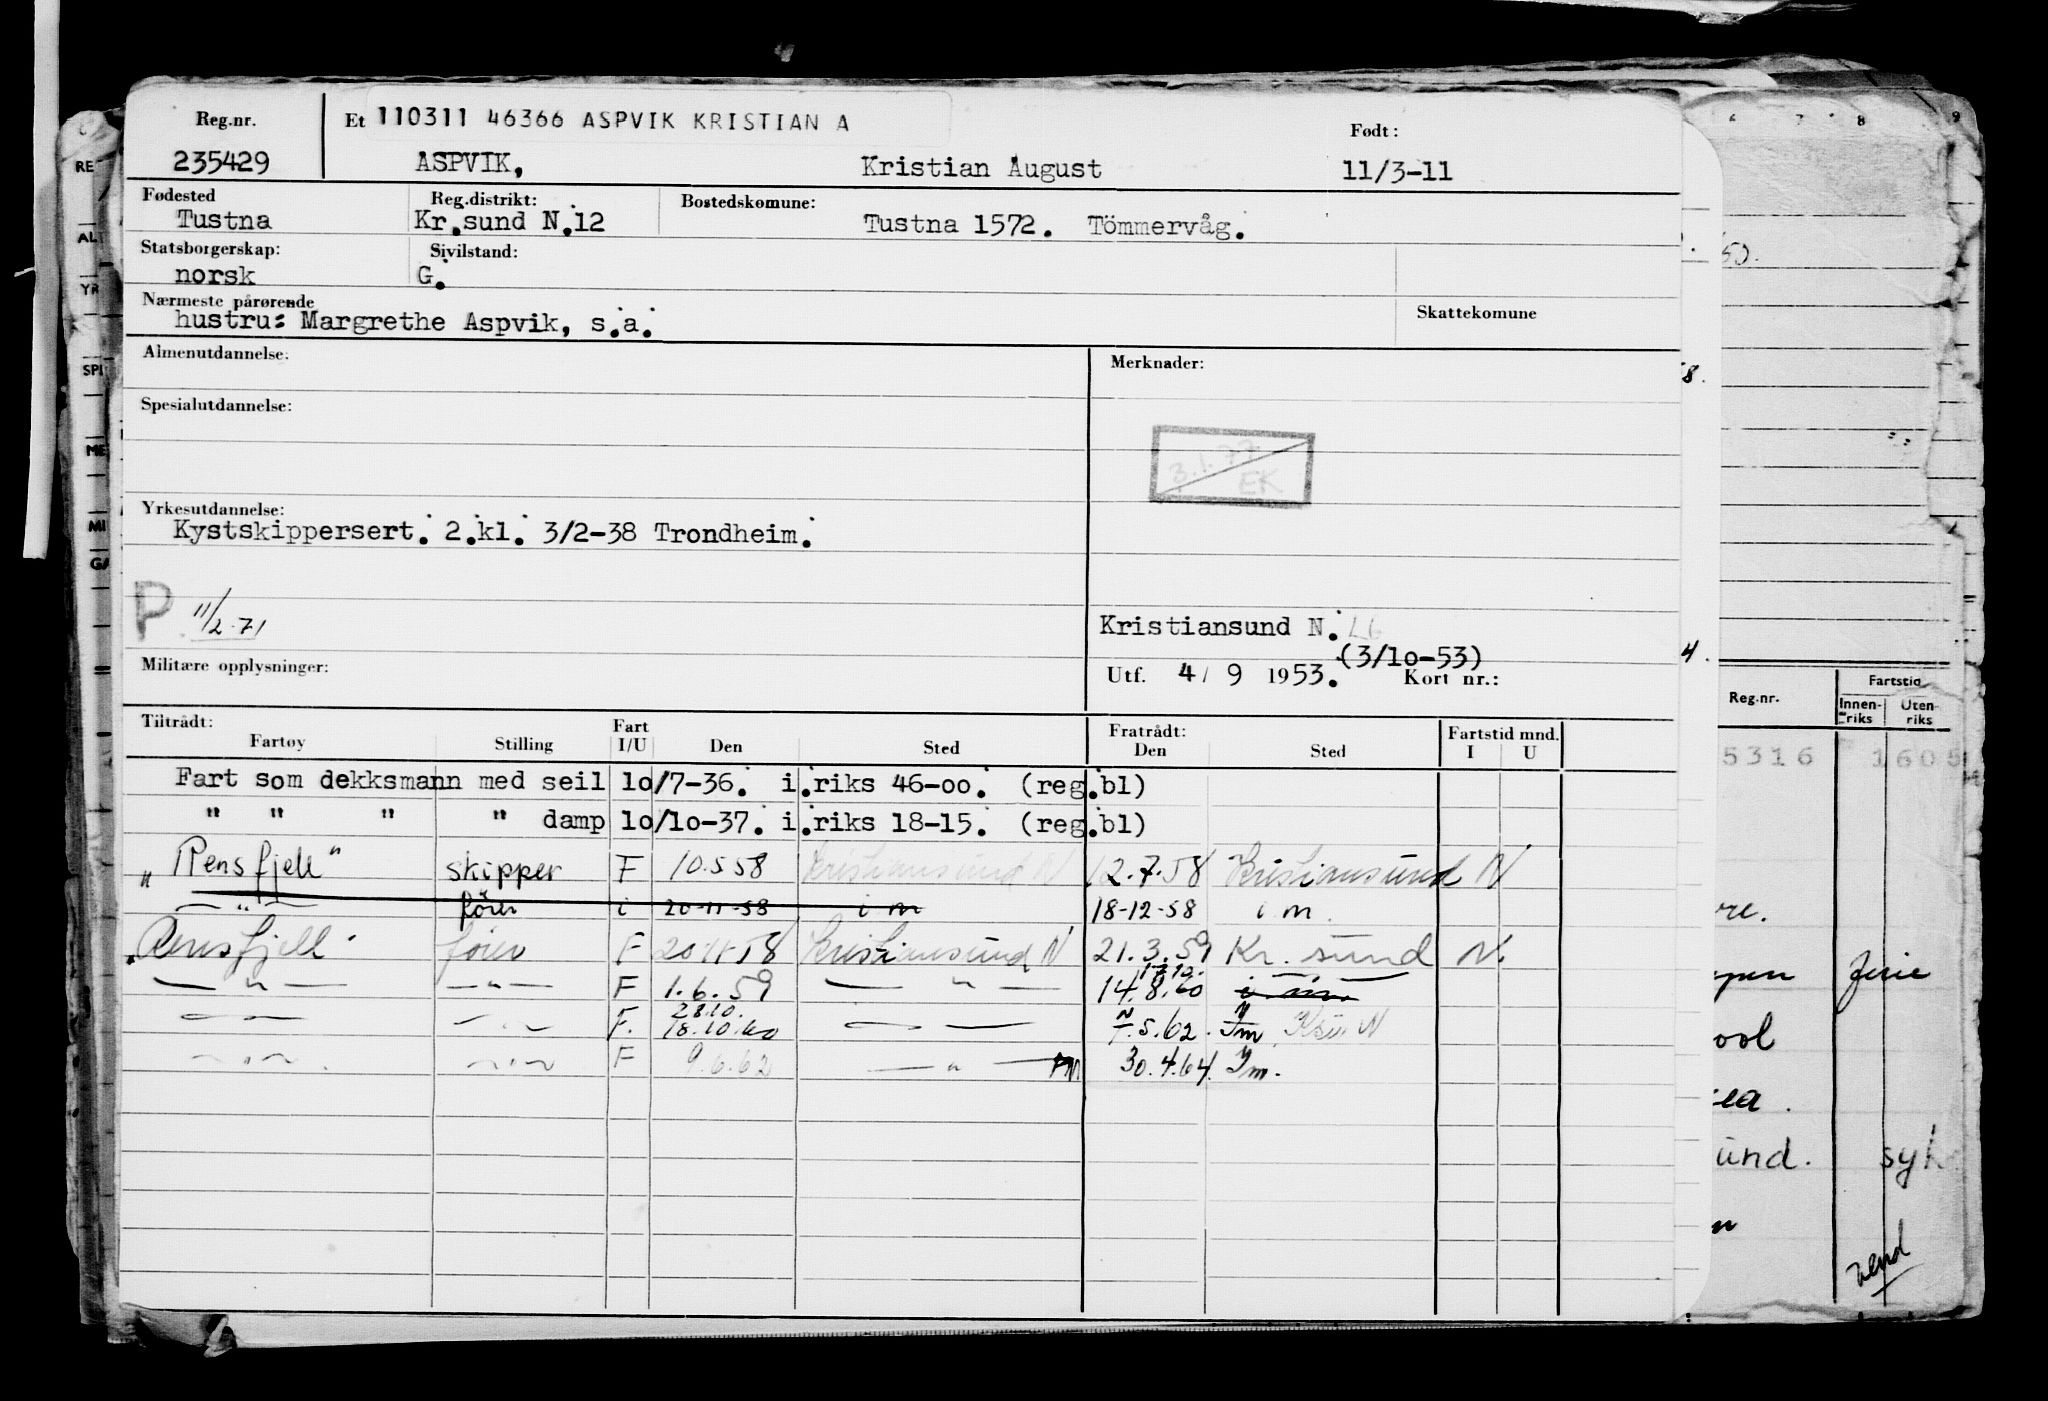 Reg.nr. Et 110311 46366 ASPVIK KRISTIAN A Født:
235429 ASPVIK, Kristian August 11/3-11
Fødested Reg.distrikt: Bostedskomune:
Tustna Kr.sund N.12 Tustna 1572. Tömmervåg.
Statsborgerskap: Sivilstand:
norsk G.
Nærmeste pårørende Skattekomune
hustru: Margrethe Aspvik, s.a.
Almenutdannelse: Merknader:
Spesialutdannelse:
3.1.77
EK
Yrkesutdannelse:
Kystskippersert. 2.kl. 3/2-38 Trondheim.
P. 11/2-71
Kristiansund N.
(3/10-53)
Militære opplysninger: Utf. 4/ 9 1953. Kort nr.:
Tiltrådt: Fart Fratrådt: Fartstid mnd.
Fartøy Stilling I/U Den Sted Den Sted I U
Fart som dekksmann med seil 10/7-36. i.riks 46-00. (reg.bl)
" " " " damp 10/10-37. i.riks 18-15. (reg.bl)
"Rensfjell" skipper F 10.5.58 Kristiansund N 12.7.58 Kristiansund N
— " — fører i 20-11-58 i m 18-12-58 i m.
Rensfjell fører F 20.11.58 Kristiansund N 21.3.59 Kr. sund N.
— " — — " — F 1.6.59 — " — 14.8.60 i m
28.10.
— " — — " — F. 18.10.60 — " — 5.62. Ym Ksu N
— " — — " — F 9.6.62 — " — 30.4.64. Ym.
Reg.nr. Fartstid
Innenriks Utenriks
5316 1605
ferie
syk
vend